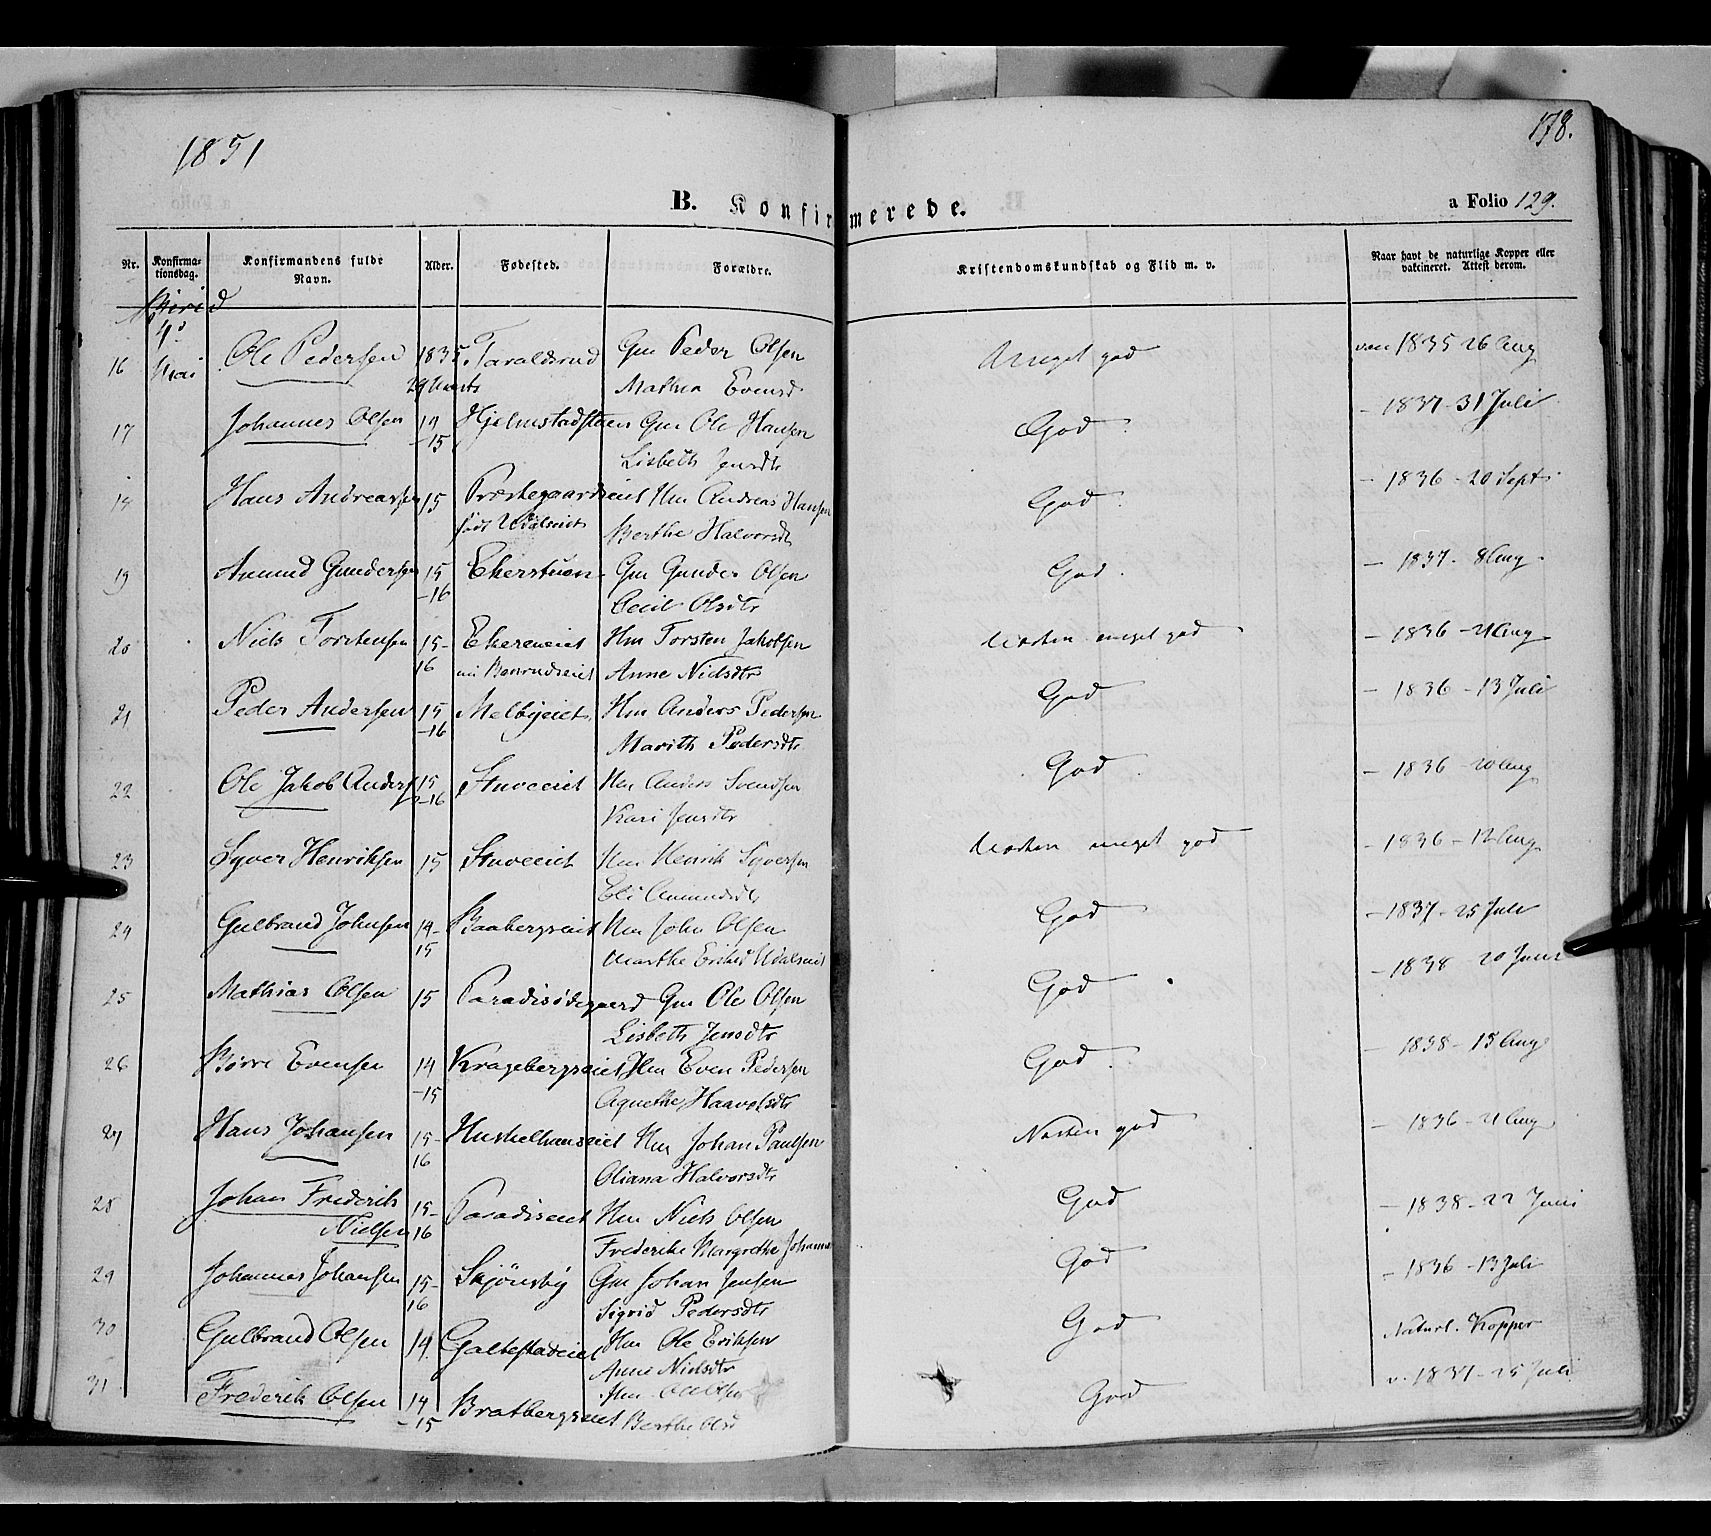 1851
178.
B. Konfirmerede.
a Folio 129.
Nr.
Konfirma-
tionsdag.
Konfirmandens fulde
Navn.
Alder.
Fødested.
Forældre.
Kristendomskundskab og Flid m. v.
Naar havt de naturlige Kopper eller
vakcineret. Attest derom.
Birid
4d
Mai
16 Ole Pedersen 1835 Taraldsrud Gm Peder Olsen Meget god vacc 1835 26 Aug
29 Marts Mathea Evensd
17 Johannes Olsen 14 Hjelmstadstuen Gm Ole Hansen God. – 1837 – 31 Juli
–15 Lisbeth Jensdtr
18 Hans Andreassen 15 Præstegaardseiet Hm Andreas Hansen God. – 1836 – 20 Sept
født Berthe Halvorsdt
19 Amund Gundersen 15 Ekerstuen Gm Gunder Olsen God. – 1837. 8 Aug.
–16 Cecil Olsdtr
20 Niels Torstensen 15– Ekereneiet Hm Torsten Jakobsen Næsten meget god – 1836 – 21 Aug
16 Anne Nielsdtr
21 Peder Andersen 15 Melbyeiet Hm Anders Pedersen God – 1836 – 13 Juli
–16 Marith Pedersdtr
22 Ole Jakob Anders 15 Stuveeiet Hm Anders Svendsen God. – 1836 – 20 Aug
–16 Kari Jensdtr
23 Syver Henriksen 15 Stuveeiet Hm Henrik Syversen Næsten meget god – 1836 – 12 Aug
Eli Amundsdt
24 Gulbrand Johnsen 14– Baabergseiet Hm John Olsen God – 1837 – 25 Juli
15 Marthe Eriksd
25 Mathias Olsen 15 Paradisødegaard Gm Ole Olsen God – 1838 – 20 Juni
Lisbeth Jensdtr
26 Børre Evensen 14 Kragebergseiet Hm Even Pedersen God. – 1838 – 15 Aug
–15 Agnethe Haavolsdtr
27 Hans Johansen 15– Huskelhuuseiet Hm Johan Paulsen Næsten god – 1836 – 21 Aug
16 Oliana Halvorsdtr
28 Johan Frederik 15– Paradiseiet Hm Niels Olsen God – 1838 – 22 Juni
Nielsen 16 Frederike Margrethe Johanne
29 Johannes Johansen 15– Skjønsby Gm Johan Jensen God – 1836 – 13 Juli
16 Sigrid Pedersdtr
30 Gulbrand Olsen 14. Galtestadeiet Hm Ole Eriksen God Naturl. Kopper
Anne Nielsdtr
31 Frederik Olsen 14 Bratbergseiet Hm Ole Olsen God v. 1837 – 25 Juli
–15 Berthe Olsd